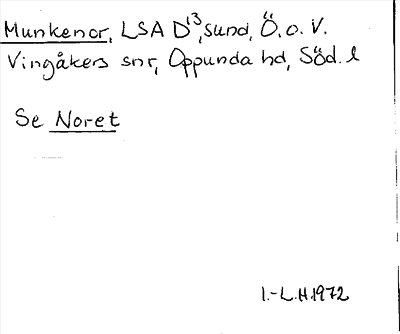 Munkenor, LSA D¹³, sund, Ö. o. V.
Vingåkers snr, Oppunda hd, Söd. l
Se Noret
I.-L.H.1972